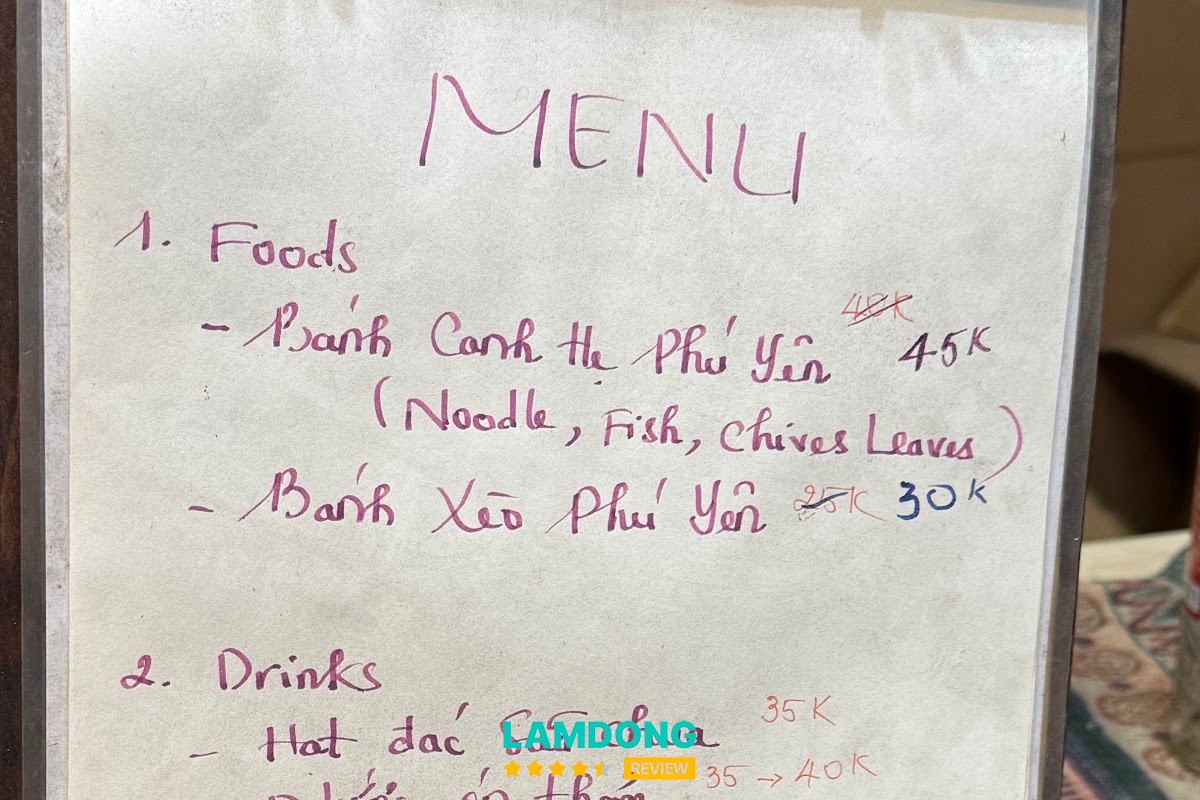 MENU
1. Foods
- Bánh Canh Hẹ Phú Yên 40K 45K
(Noodle, Fish, Chives Leaves)
- Bánh Xèo Phú Yên 25K 30K
2. Drinks
- Hạt đác 35K
LAMDONG
REVIEW
35 → 40K